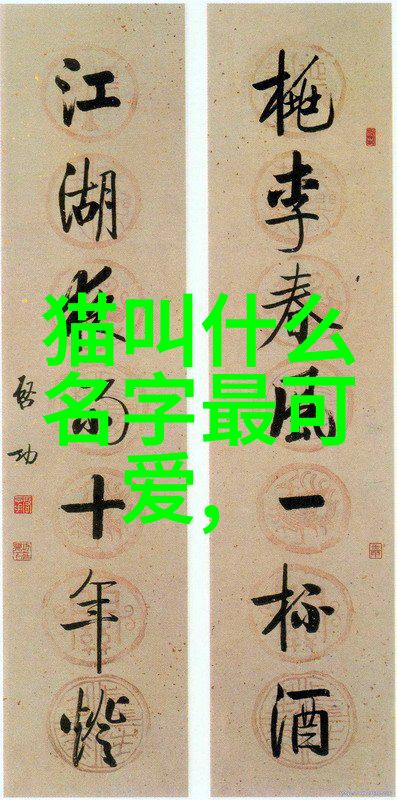 桃李春風一杯酒
江湖夜雨十年燈
啓功
猫叫什么
名字最可
爱,